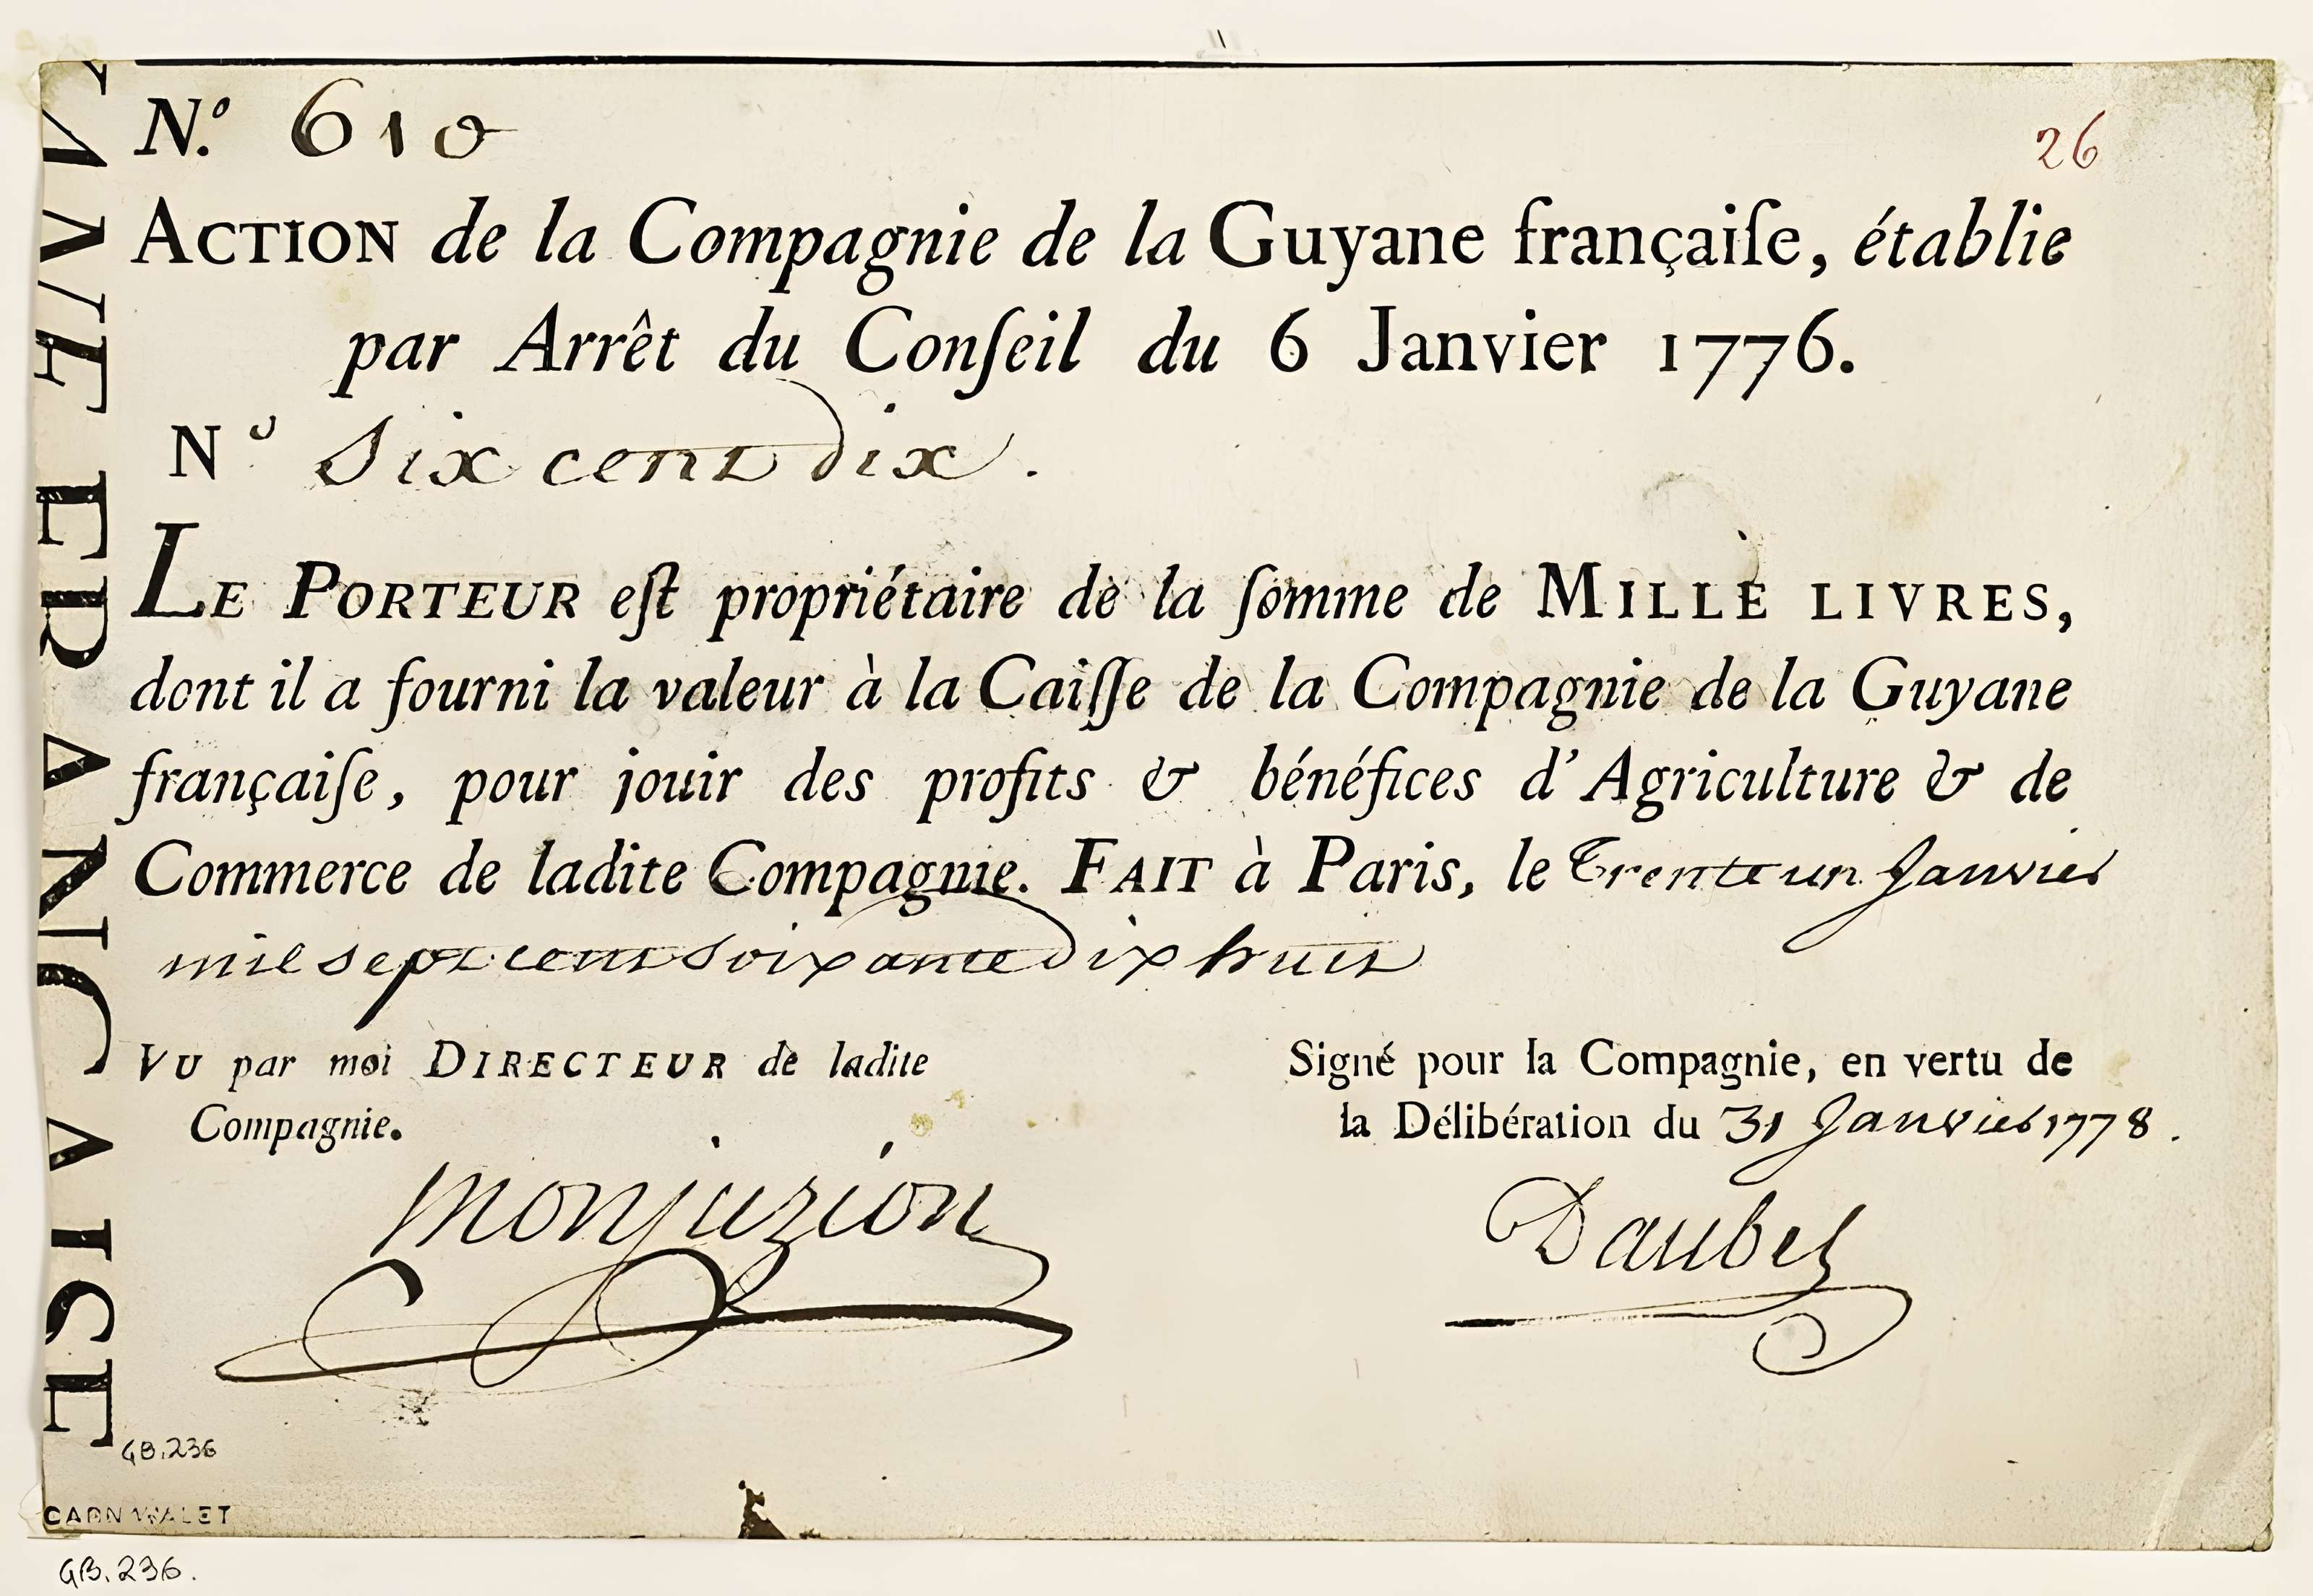 N.º 610
26
ACTION de la Compagnie de la Guyane françaiſe, établie
par Arrêt du Conſeil du 6 Janvier 1776.
Nº Six cent dix.
LE PORTEUR eſt propriétaire de la ſomme de MILLE LIVRES,
dont il a fourni la valeur à la Caiſſe de la Compagnie de la Guyane
françaiſe, pour jouir des profits & bénéfices d'Agriculture & de
Commerce de ladite Compagnie. FAIT à Paris, le Trente un Janvier
mil sept cent Soixante Dix huit
VU par moi DIRECTEUR de ladite
Compagnie.
Monjuzion
Signé pour la Compagnie, en vertu de
la Délibération du 31 Janvier 1778.
FRANÇAISE
GB.236
CARNAVALET
GB.236.